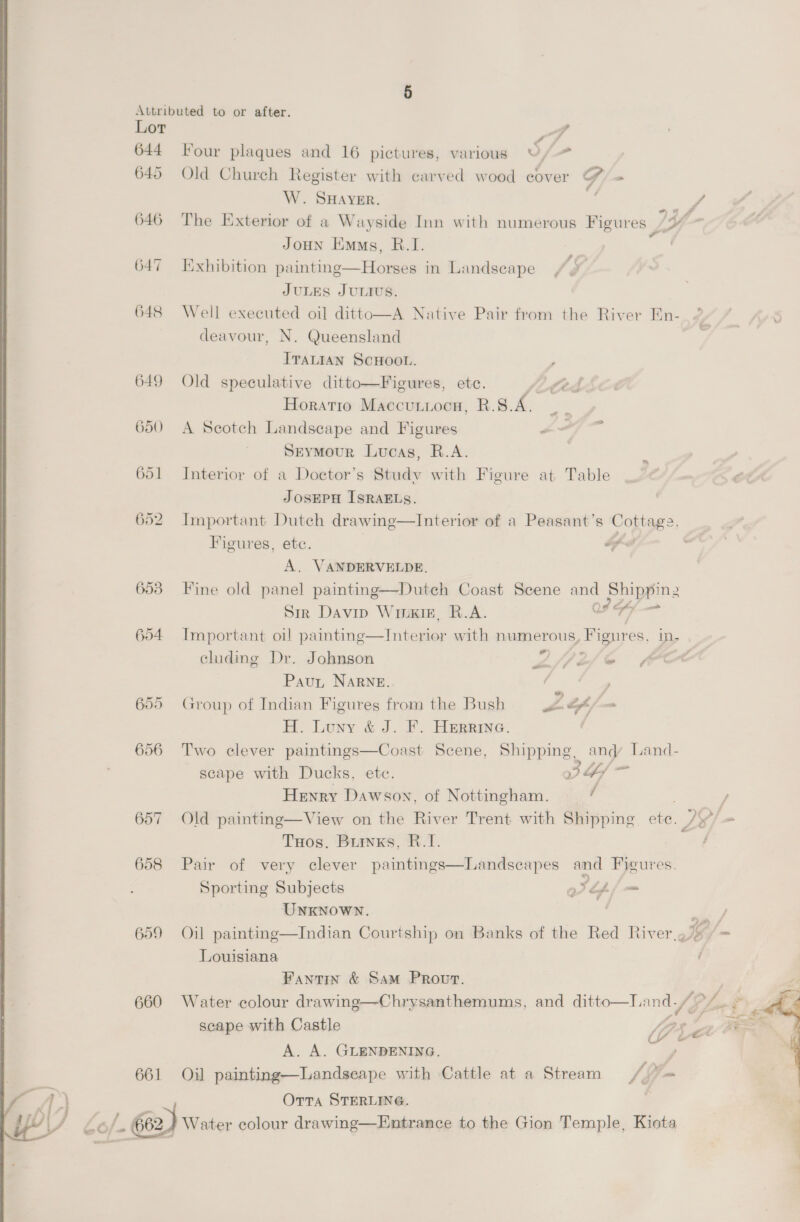 5
Attributed to or after.
Lot
644 Four plaques and 16 pictures, various 5/-
645 Old Church Register with carved wood cover 9/-
W. SHAYER.
646 The Exterior of a Wayside Inn with numerous Figures
JOHN EMMS, R.I.
647 Exhibition painting—Horses in Landscape
JULES JULIUS.
648 Well executed oil ditto—A Native Pair from the River En-
deavour, N. Queensland
ITALIAN SCHOOL.
649 Old speculative ditto—Figures, etc.
HORATIO MACCULLOCH, R.S.A.
650 A Scotch Landscape and Figures
SEYMOUR LUCAS, R.A.
651 Interior of a Doctor's Study with Figure at Table
JOSEPH ISRAELS.
652 Important Dutch drawing—Interior of a Peasant's Cottage,
Figures, etc.
A. VANDERVELDE.
653 Fine old panel painting—Dutch Coast Scene and Shipping
SIR DAVID WILKIE, R.A.
654 Important oil painting—Interior with numerous Figures, in-
cluding Dr. Johnson
PAUL NARNE.
655 Group of Indian Figures from the Bush
H. LUNY & J. F. HERRING.
656 Two clever paintings—Coast Scene, Shipping, and Land-
scape with Ducks, etc.
HENRY DAWSON, of Nottingham.
657 Old painting—View on the River Trent with Shipping etc.
THOS. BLINKS, R.I.
658 Pair of very clever paintings—Landscapes and Figures.
Sporting Subjects
UNKNOWN.
659 Oil painting—Indian Courtship on Banks of the Red River,
Louisiana
FANTIN & SAM PROUT.
660 Water colour drawing—Chrysanthemums, and ditto—Land-
scape with Castle
A. A. GLENDENING.
661 Oil painting—Landscape with Cattle at a Stream
OTTA STERLING.
662 Water colour drawing—Entrance to the Gion Temple, Kiota